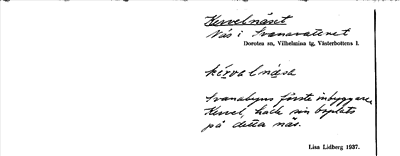 Kervelnäset
Näs i Svanavatenet
Dorotea sn, Vilhelmina tg, Västerbottens l.
kérvalnäsə
Svanabyns förste inbyggare,
Kervel, hade sin boplats
på detta näs.
Lisa Lidberg 1937.